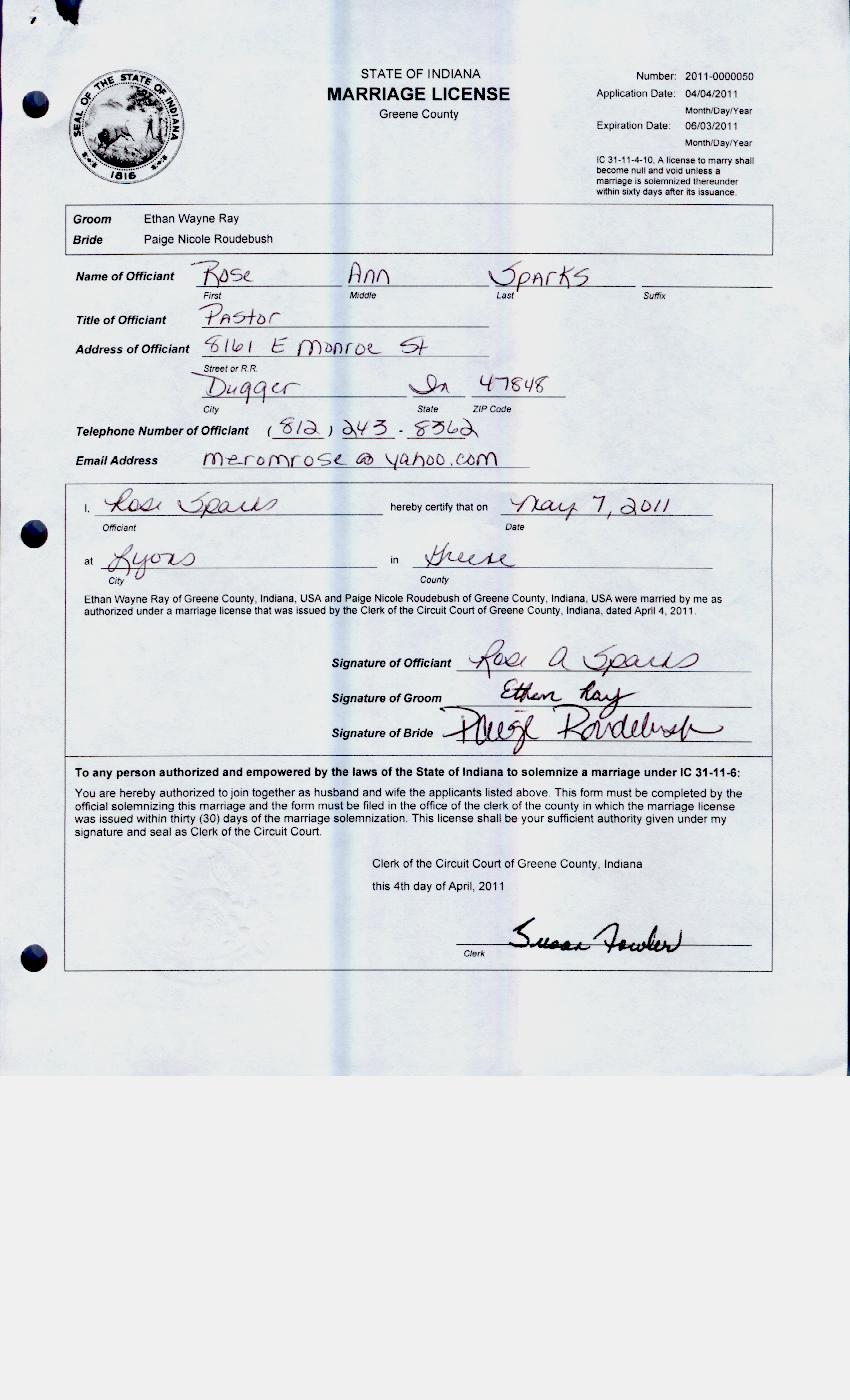 STATE OF INDIANA
MARRIAGE LICENSE
Greene County
Number: 2011-0000050
Application Date: 04/04/2011
Month/Day/Year
Expiration Date: 06/03/2011
Month/Day/Year
IC 31-11-4-10, A license to marry shall
become null and void unless a
marriage is solemnized thereunder
within sixty days after its issuance.
SEAL OF THE STATE OF INDIANA
1816
Groom Ethan Wayne Ray
Bride Paige Nicole Roudebush
Name of Officiant Rose Ann Sparks
First Middle Last Suffix
Title of Officiant Pastor
Address of Officiant 8161 E Monroe St
Street or R.R.
Dugger In 47848
City State ZIP Code
Telephone Number of Officiant (812) 243-8362
Email Address meromrose@yahoo.com
I, Rose Sparks hereby certify that on May 7, 2011
Officiant Date
at Lyons in Greene
City County
Ethan Wayne Ray of Greene County, Indiana, USA and Paige Nicole Roudebush of Greene County, Indiana, USA were married by me as
authorized under a marriage license that was issued by the Clerk of the Circuit Court of Greene County, Indiana, dated April 4, 2011.
Signature of Officiant Rose A Sparks
Signature of Groom Ethan Ray
Signature of Bride Paige Roudebush
To any person authorized and empowered by the laws of the State of Indiana to solemnize a marriage under IC 31-11-6:
You are hereby authorized to join together as husband and wife the applicants listed above. This form must be completed by the
official solemnizing this marriage and the form must be filed in the office of the clerk of the county in which the marriage license
was issued within thirty (30) days of the marriage solemnization. This license shall be your sufficient authority given under my
signature and seal as Clerk of the Circuit Court.
Clerk of the Circuit Court of Greene County, Indiana
this 4th day of April, 2011
Susan Fowler
Clerk